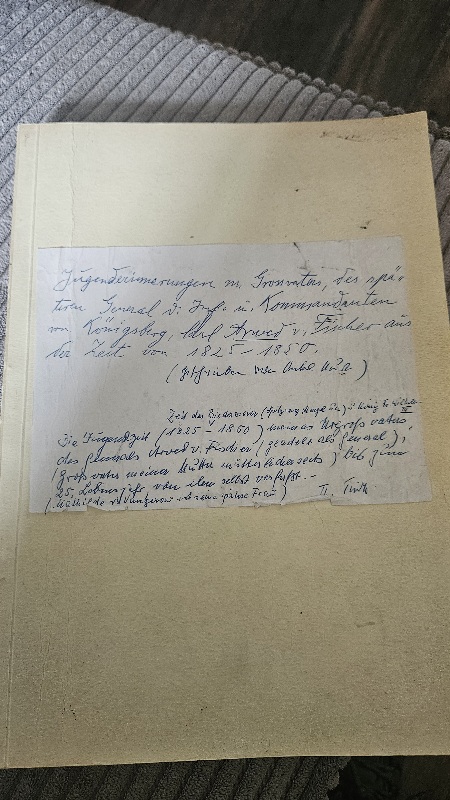 Jugenderinnerungen m. Grossvaters, des spä-
teren General d. Inf. u. Kommandanten
von Königsberg, Carl Arwed v. Fischer aus
der Zeit von 1825-1850.
(geschrieben von Onkel
Zeit des Biedermeier König
Die Jugendzeit (1825-1850) meines Urgroßvaters
des Generals Arwed v. Fischer (geadelt als General),
(Großvater meiner Mutter mütterlicherseits) bis zum
25. Lebensjahr von ihm selbst verfaßt. -
(Mathilde